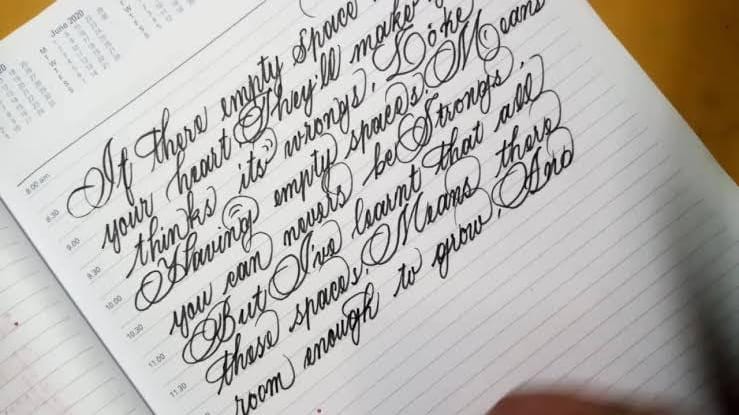 June 2020
M T W T F S S
8.00 am
8.30
9.00
9.30
10.00
10.30
11.00
11.30
If there empty Space
your heart They'll make
thinks its wrongs, Like
Having empty spaces, Means
you can nevers be Strongs,
But I've learnt that all
those spaces, Means there
room enough to grow, And